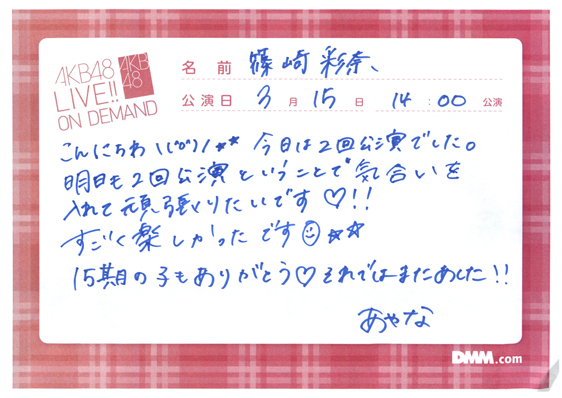 AKB48
LIVE!!
ON DEMAND
AKB
48
名前 篠崎彩奈、
公演日 3月15日 14:00公演
こんにちわ\(^o^)/☆☆ 今日は2回公演でした。
明日も2回公演ということで気合いを
入れて頑張りたいです♡!!
すごく楽しかったです☺☆☆
15期の子もありがとう♡それではまたあした!!
あやな
DMM.com